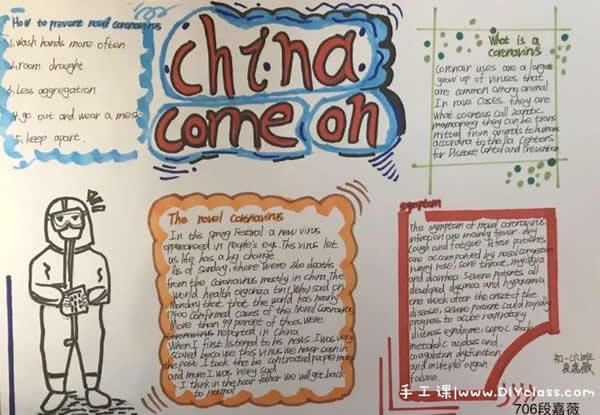 How to prevent novel coronavirus
1.wash hands more often
2.room draught
3.Less aggregation
4.go out and wear a mask
5.keep apart.
china
come on
What is a
coronavirus
Coronair uses are a large
grow up of viruses that
are common among animal
In rave cases. they are
what scientiss call zoonotic.
meanning they can be trans
mitted from animals to humans
according to the U.S. Centers
for Disease Control and Prevention
The novel coronavirus
In this spring Festival a new virus
appeared in people's eye. This virus let
us life has a big change
As of sunday, there were 360 deaths
from the coronavirus mostly in china, The
world health organiza tion (Who) said on
Monday that that the world has nearly
17400 confirmed cases of the novel coronavirus.
More than 99 percent of those were
coronavirus reported in China
When I first listened to his news. I was very
scared because this virus we never seen in
the past. I took the be contracted people more
and more I was very sad
I think in the near futher we will get back
to normal
symptom
The symptom of novel coronavirus
infection are mainly fever, dry
cough and fatigue. A few patients
are accompanied by nasal congestion
runny nose, sore throat, myalgia
and diarrhea. Severe patients all
developed dyspnea and hypoxemia
one week after the onset of the
disease, severe patient could rapidly
progress to acute respiratory
distress syndrome, septic shock,
metabolic acidosis and
coagulation dysfunction
and multiple organ
failure.
初一(六)班
段嘉薇
手工课|www.DIYclass.com
706段嘉薇